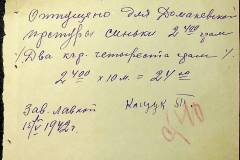 Отпущено для Доманевской
простуры синьки 2 400 грам
/Два кгр. четыреста грам/.
2 400 × 10 м. = 24 00
Зав. лавкой
15/V 1942 г.